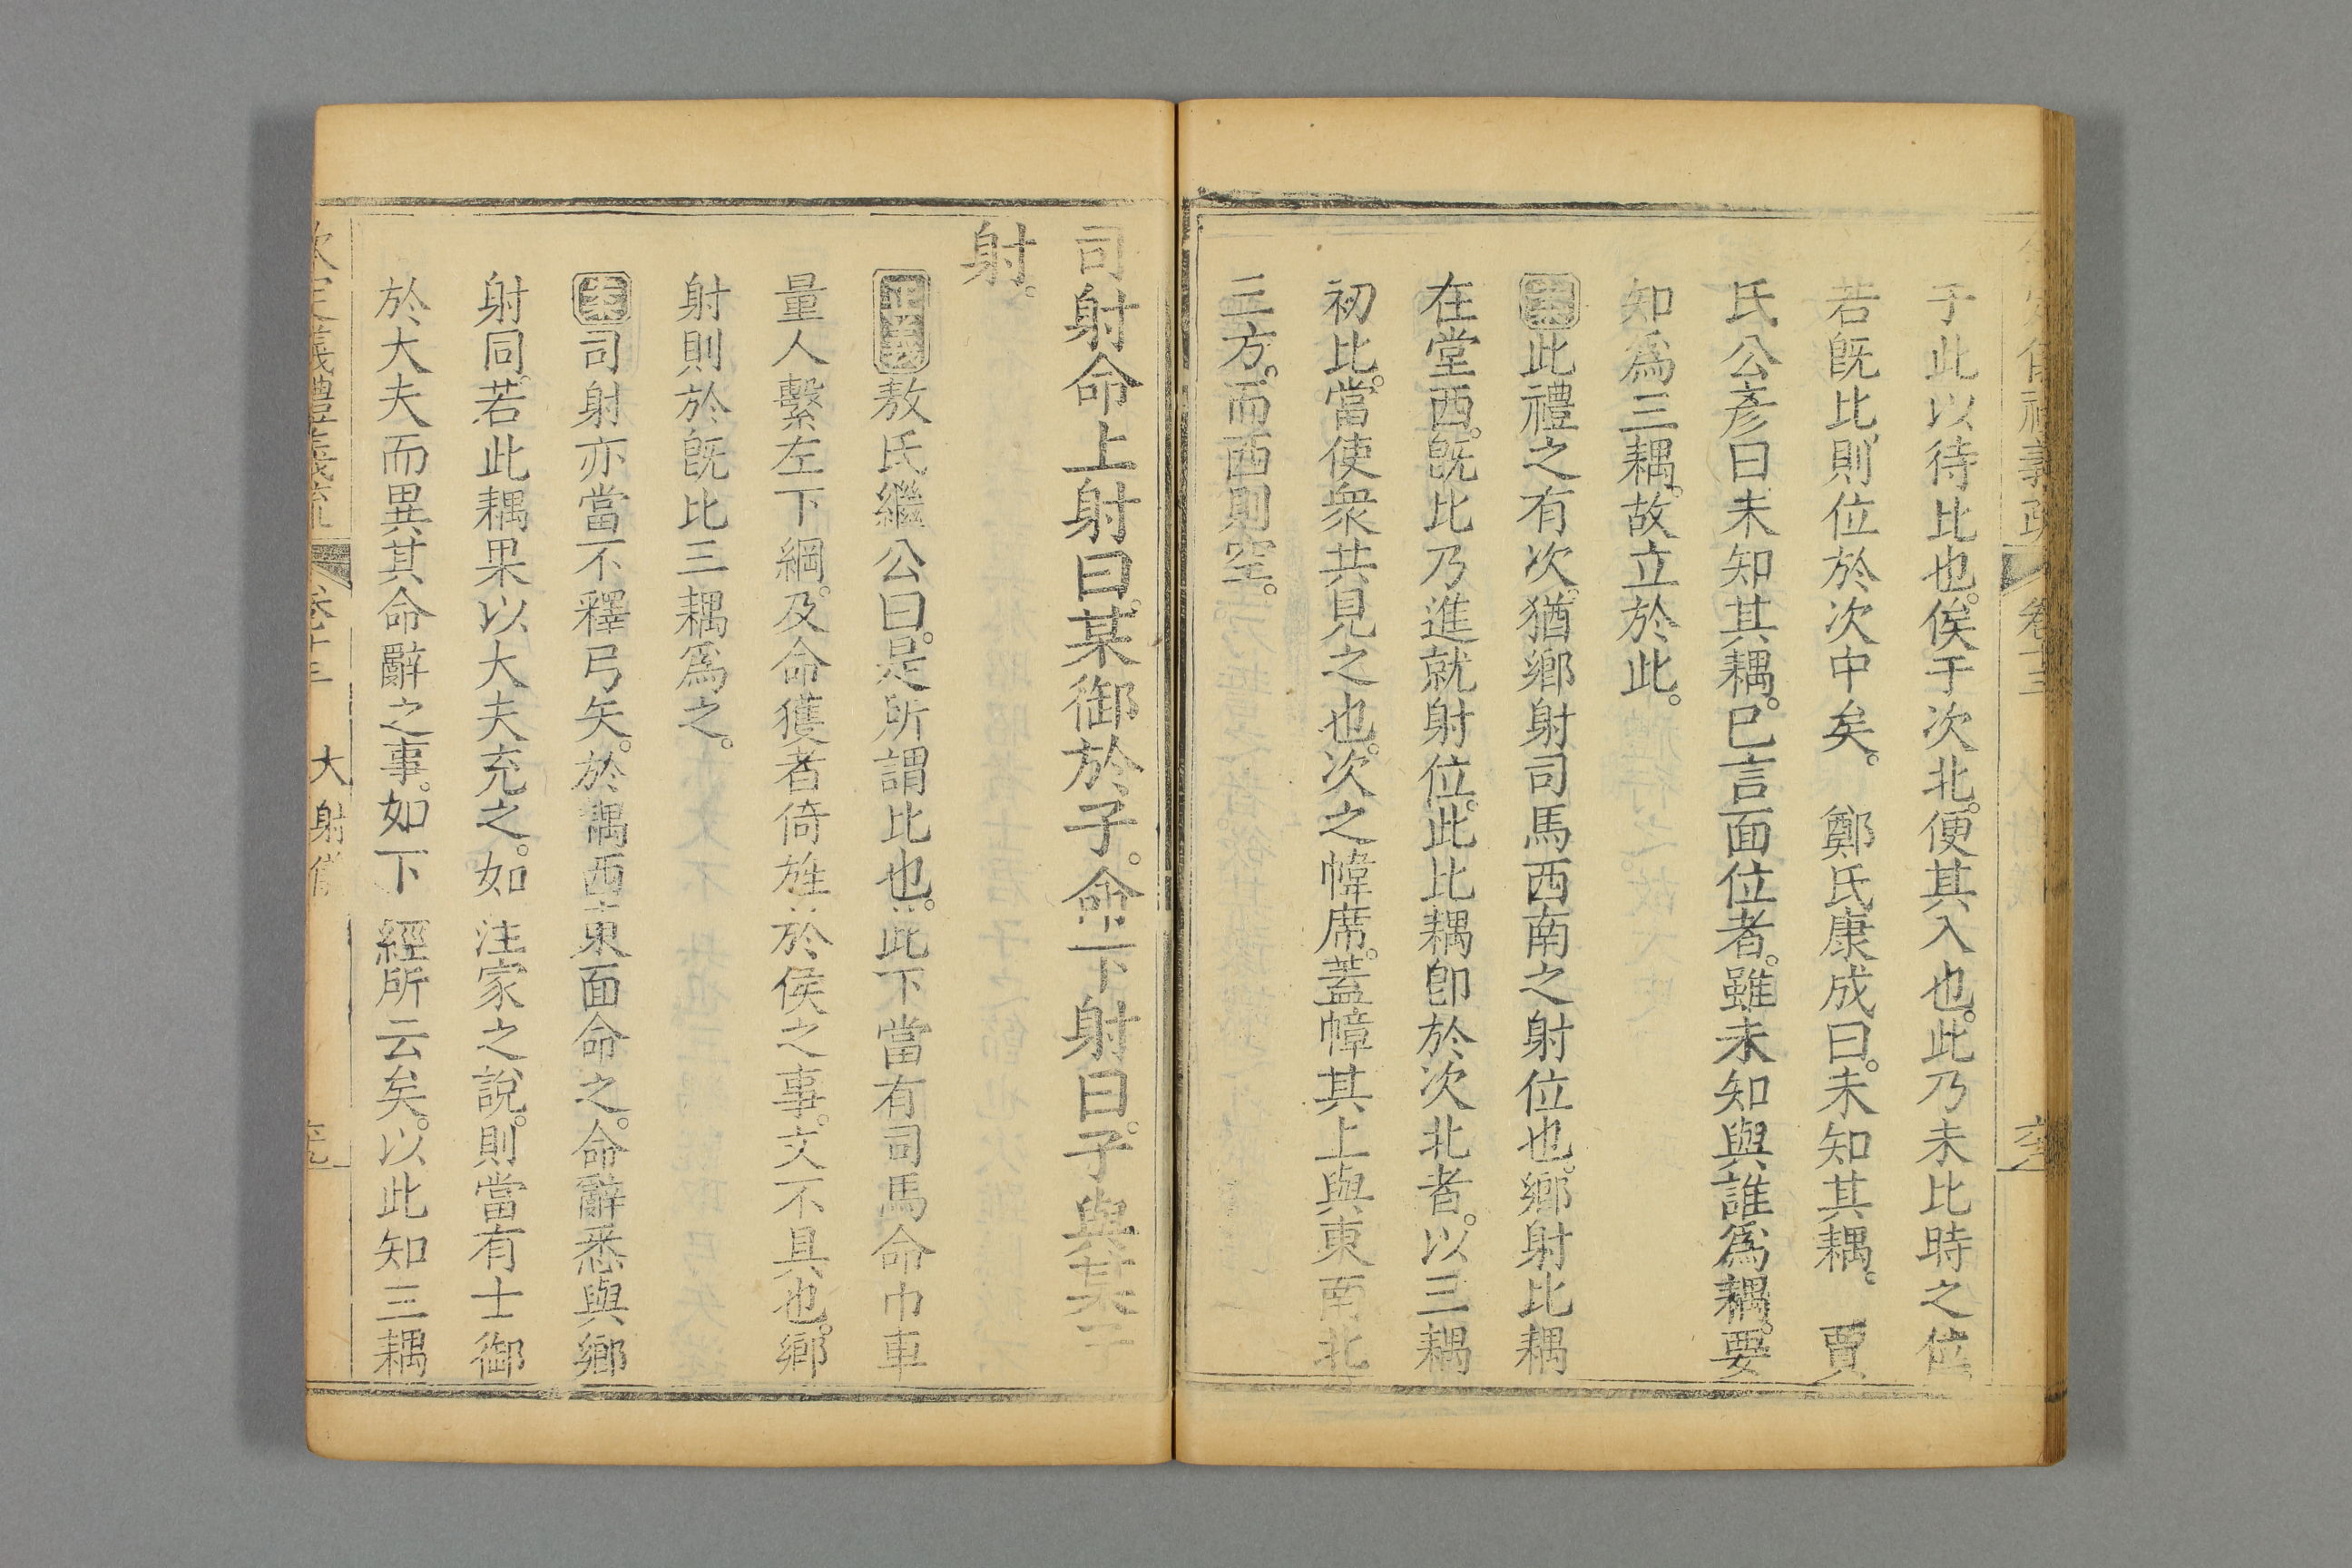 于此以待比也。俟于次北。便其入也。此乃未比時之位
若旣比、則位於次中矣。　鄭氏康成曰。未知其耦。　賈
氏公彥曰未知其耦。已言面位者。雖未知與誰爲耦。要
知爲三耦。故立於此。
案此禮之有次。猶鄉射司馬西南之射位也。鄉射比耦
在堂西。旣比乃進就射位。此比耦卽於次北者。以三耦
初比。當使衆共見之也。次之幃席。蓋幛其上與東南北
三方。而西則空。
司射命上射曰。某御於子。命下射曰。子與某子
射。
正義敖氏繼公曰。是所謂比也。此下當有司馬命巾車
量人繫左下綱。及命獲者倚旌於侯之事。文不具也。鄉
射則於旣比三耦爲之。
案司射亦當不釋弓矢。於耦西東面命之。命辭悉與鄉
射同。若此耦果以大夫充之。如 注家之說。則當有士御
於大夫而異其命辭之事。如下 經所云矣。以此知三耦
欽定儀禮義疏 卷十三 大射儀